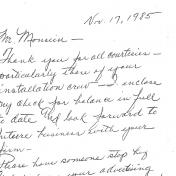 Nov. 17, 1985
Mr. Monsein -
Thank you for all courtesies -
particularly those of your
installation crew - I enclose
my check for balance in full
to date and look forward to
future business with your
firm -
Please have someone stop by
your advertising